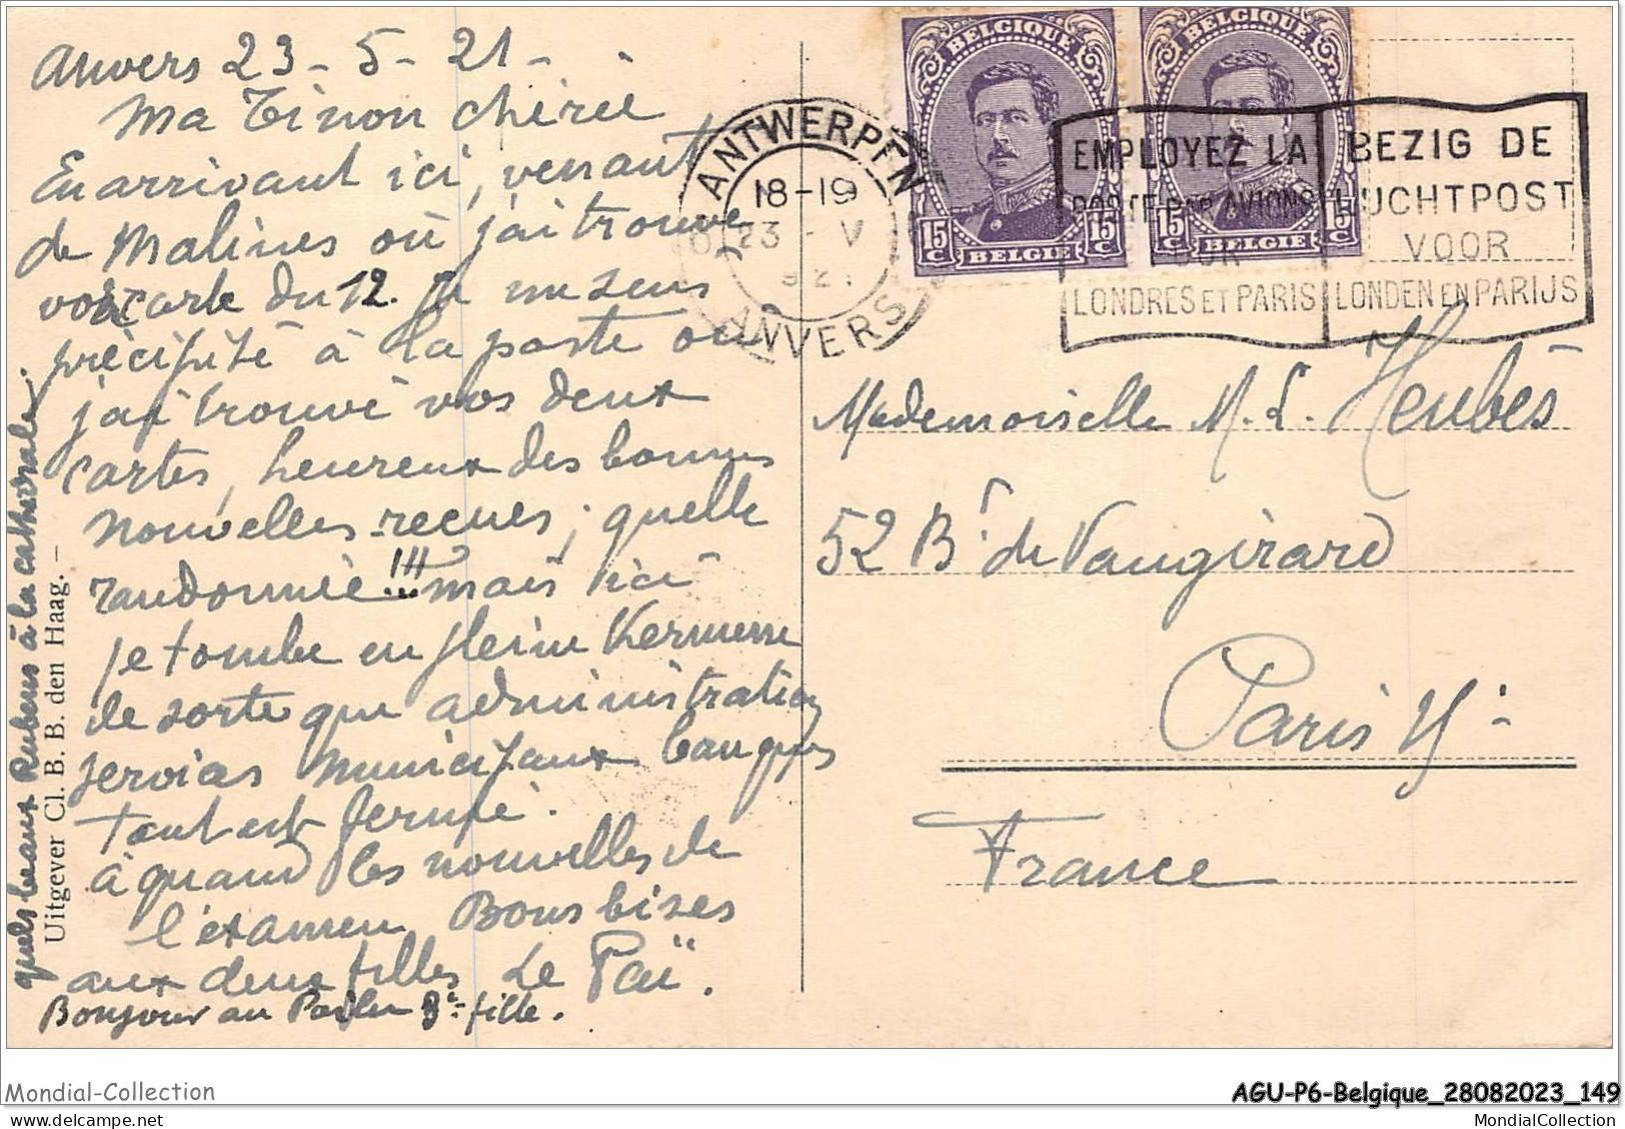 Anvers 23-5-21-
Ma Tinon chérie
En arrivant ici, venant
de Malines où j'ai trouvé
carte du 12. Je me suis
précipité à la poste où
j'ai trouvé vos deux
cartes, heureux des bonnes
nouvelles recues; quelle
randonnée!!! mais ici
je tombe en pleine Kermesse
de sorte que administration
services municipaux banques
tout est fermé.
à quand les nouvelles de
l'examen Bons bises
aux deux filles Le Paï.
Bonjour au 3e fille.
quels beaux Rubens à la cathédrale.
Uitgever Cl. B. B. den Haag. –
ANTWERPEN
18-19
23 - V
921
ANVERS
BELGIQUE
15 C
BELGIE
15 C
BELGIQUE
15 C
BELGIE
15 C
EMPLOYEZ LA
POSTE PAR AVIONS
POUR
LONDRES ET PARIS
BEZIG DE
LUCHTPOST
VOOR
LONDEN EN PARIJS
Mademoiselle M. L. Heubès
52 Bt. de Vaugirard
Paris
France
Mondial-Collection
AGU-P6-Belgique_28082023_149
MondialCollection